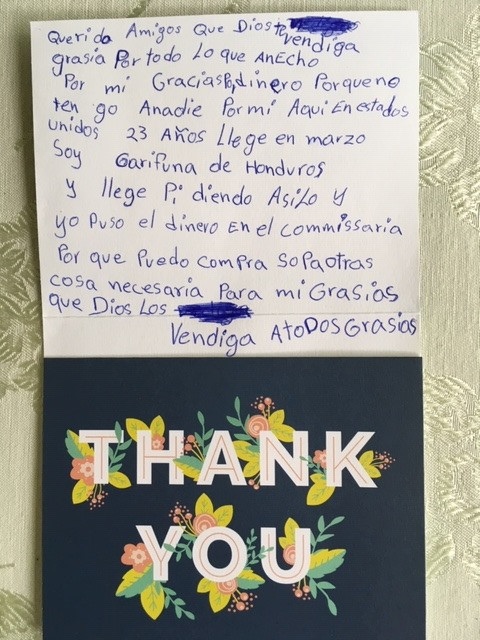 Querido Amigos Que Dios te
vendiga
grasia Por todo Lo que AnEcho
Por mi Gracias Por dinero Porque no
ten go Anadie Por mi Aqui En estados
unidos 23 Años llege en marzo
Soy Garifuna de Honduros
y llege Pi diendo Asilo y
yo Puso el dinero En el commissaria
Por que Puedo compra SoPa otras
cosa necesaria Para mi Grasias
que Dios Los
Vendiga AtoDos Grasias
THANK
YOU